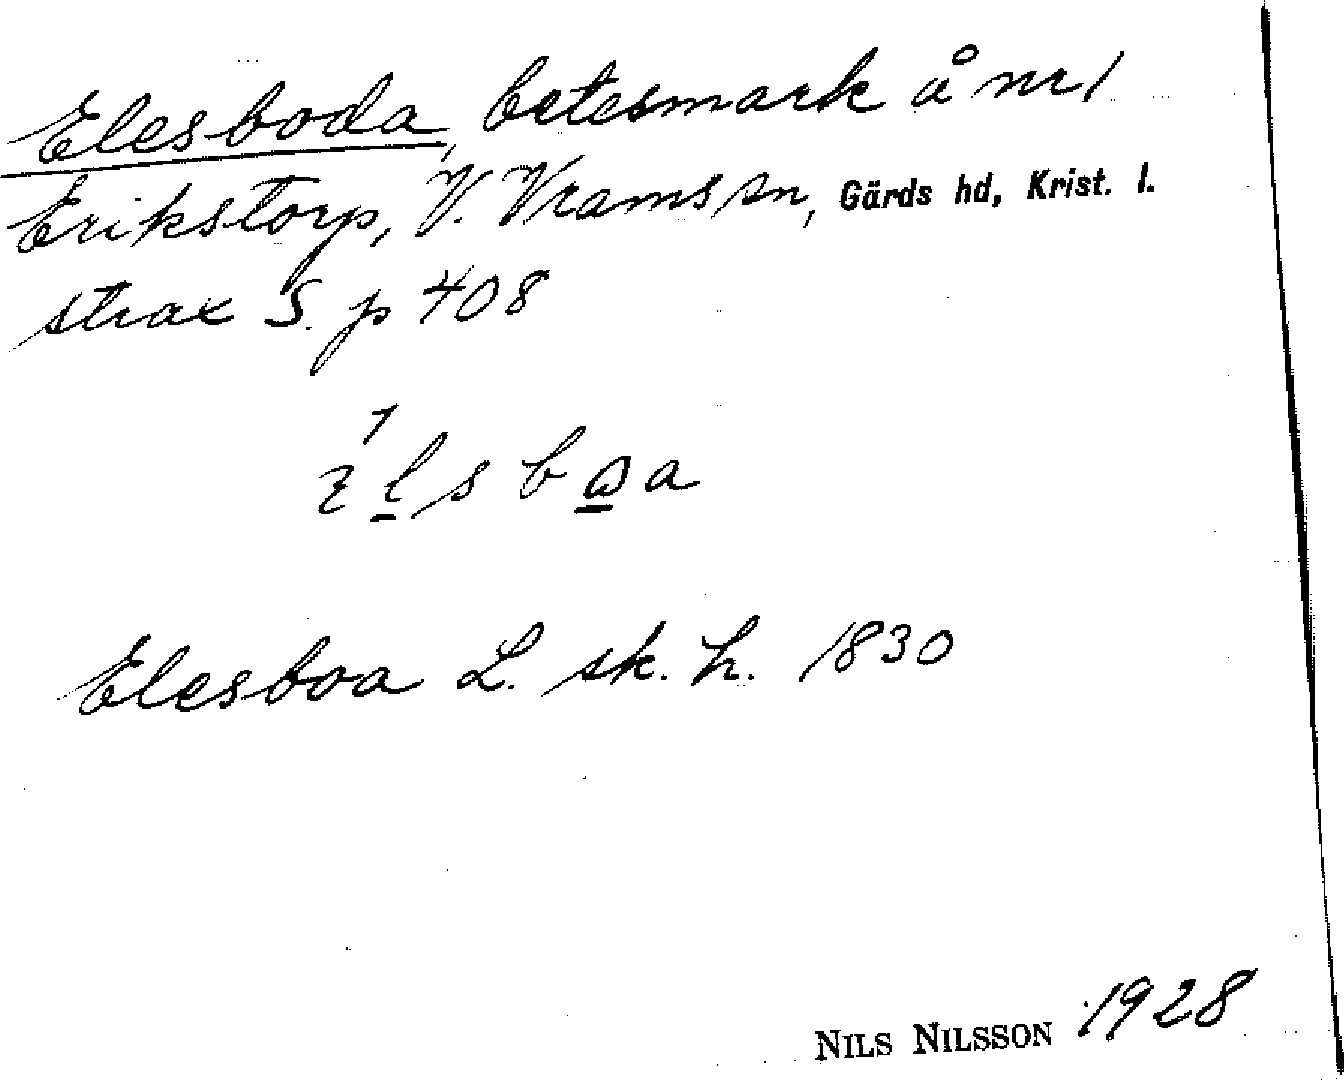 Elesboda, betesmark å nr 1
Erikstorp, V. Vrams sn, Gärds hd, Krist. l.
strax S. p 408
Elesboa L. sk. h. 1830
NILS NILSSON 1928